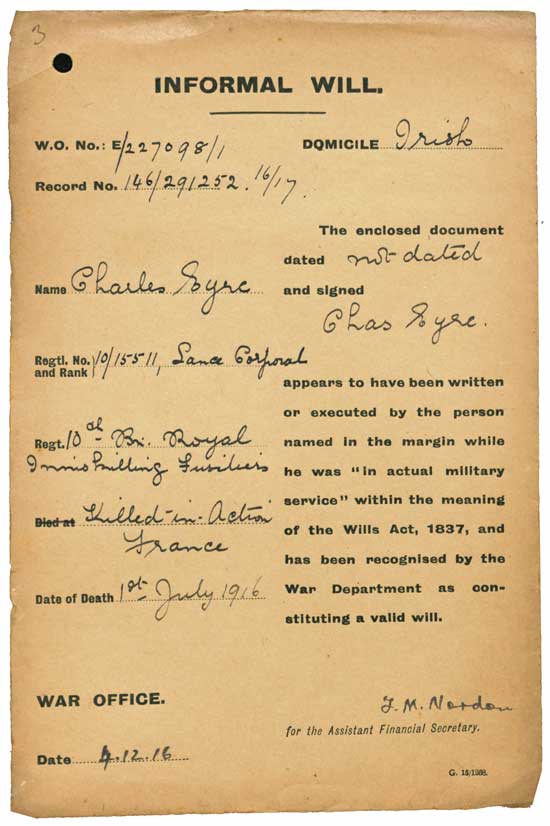 3
INFORMAL WILL.
W.O. No.: E/227098/1
DOMICILE Irish
Record No. 146/291252. 16/17.
The enclosed document
dated not dated
Name Charles Eyre
and signed
Chas Eyre.
Regtl. No. and Rank 10/15511, Lance Corporal
appears to have been written
or executed by the person
Regt. 10th Bn. Royal
named in the margin while
Inniskilling Fusiliers
he was "in actual military
service" within the meaning
Died at Killed-in-Action
of the Wills Act, 1837, and
France
has been recognised by the
Date of Death 1st July 1916
War Department as con-
stituting a valid will.
WAR OFFICE.
J. M. Nordon
for the Assistant Financial Secretary.
Date 4.12.16